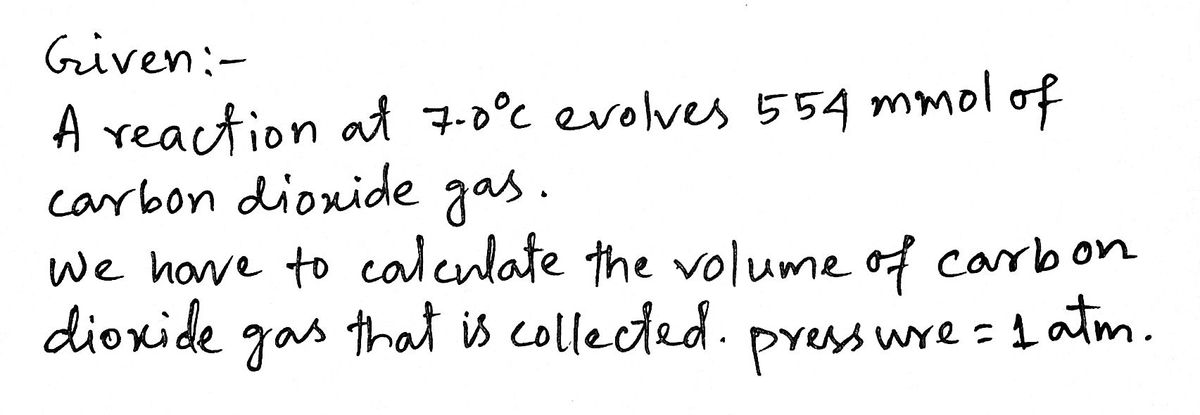 Given:-
A reaction at 7.0°C evolves 554 mmol of
carbon dioxide gas.
We have to calculate the volume of carbon
dioxide gas that is collected. pressure = 1 atm.